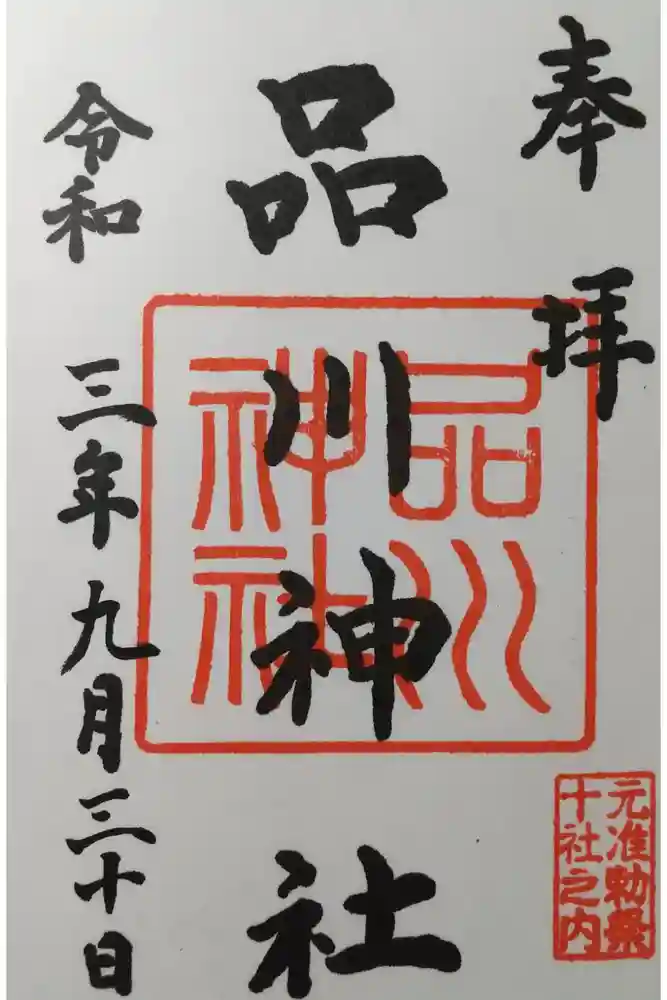 奉拝
品川神社
品川
神社
令和三年九月三十日
元准勅祭
十社之内